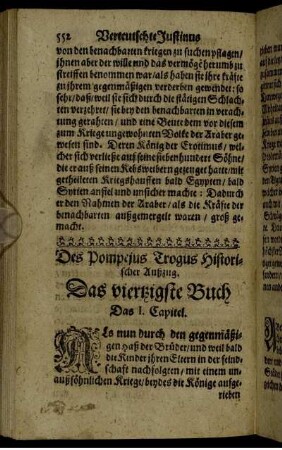 552 Verteutschte Justinus
von den benachbarten kriegen zu suchen pflagen/
ihnen aber der wille und das vermögẽ herumb zu
streiffen benommen war/ als haben sie ihre kräfte
zu ihrem gegenmäßigen verderben gewendet: so
sehr/ daß/ weil sie sich durch die stätigen Schlach-
ten verzehret/ sie bey den benachbarten in verach-
tung gerahten / und eine Beute dem vor diesem
zum Kriege ungewohnten Volke der Araber gewe-
wesen sind. Deren König der Erotimus/ wel-
cher sich verließ auf seine siebenhundert Söhne/
die er auß seinen Kebsweibern gezeuget hatte/ mit
getheileten Kriegshauffen bald Egypten / bald
Syrien anfiel und unsicher machte: Dadurch
er den Nahmen der Araber / als die Kräfte der
benachbarten außgemergelt waren / groß ge-
macht.
Des Pompejus Trogus Histori-
scher Außzug.
Das viertzigste Buch
Das I. Capitel.
ALs nun durch den gegenmäßi-
gen haß der Brüder/ und weil bald
die Kinder ihren Eltern in der feind-
schaft nachfolgten/ mit einem un-
außsöhnlichen Kriege/ beydes die Könige aufge-
rieben